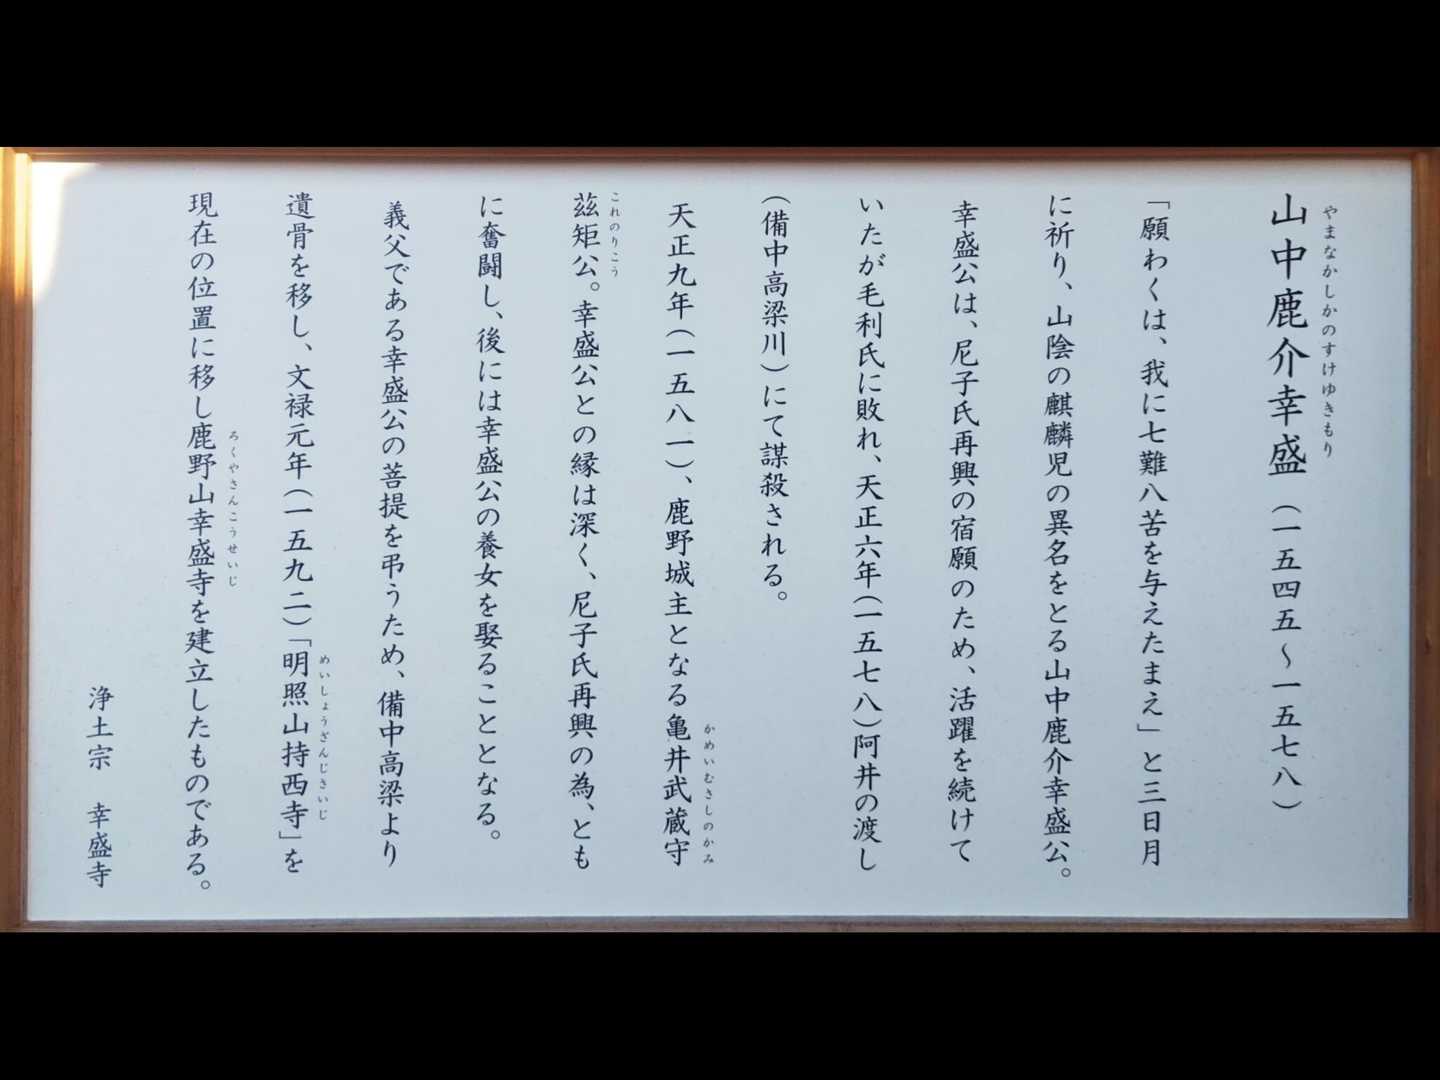 山中鹿介幸盛（一五四五～一五七八）
やまなかしかのすけゆきもり
「願わくは、我に七難八苦を与えたまえ」と三日月
に祈り、山陰の麒麟児の異名をとる山中鹿介幸盛公。
幸盛公は、尼子氏再興の宿願のため、活躍を続けて
いたが毛利氏に敗れ、天正六年（一五七八）阿井の渡し
（備中高梁川）にて謀殺される。
天正九年（一五八一）、鹿野城主となる亀井武蔵守
かめいむさしのかみ
茲矩公。幸盛公との縁は深く、尼子氏再興の為、とも
これのりこう
に奮闘し、後には幸盛公の養女を娶ることとなる。
義父である幸盛公の菩提を弔うため、備中高梁より
遺骨を移し、文禄元年（一五九二）「明照山持西寺」を
めいしょうざんじさいじ
現在の位置に移し鹿野山幸盛寺を建立したものである。
ろくやさんこうせいじ
浄土宗　幸盛寺